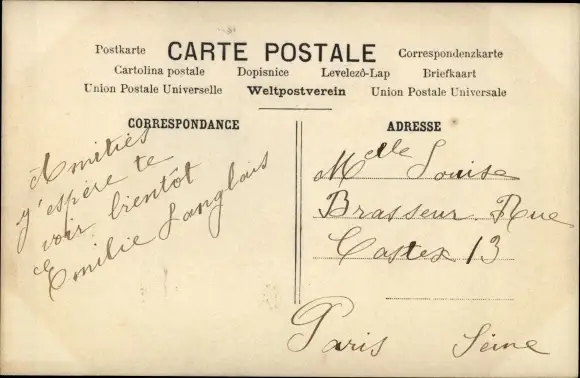 Postkarte CARTE POSTALE Correspondenzkarte
Cartolina postale Dopisnice Levelező-Lap Briefkaart
Union Postale Universelle Weltpostverein Union Postale Universale
CORRESPONDANCE
Amitiés
j'espère te
voir bientôt
Emilie Langlois
ADRESSE
Melle Louise
Brasseur Rue
Castex 13
Paris Seine